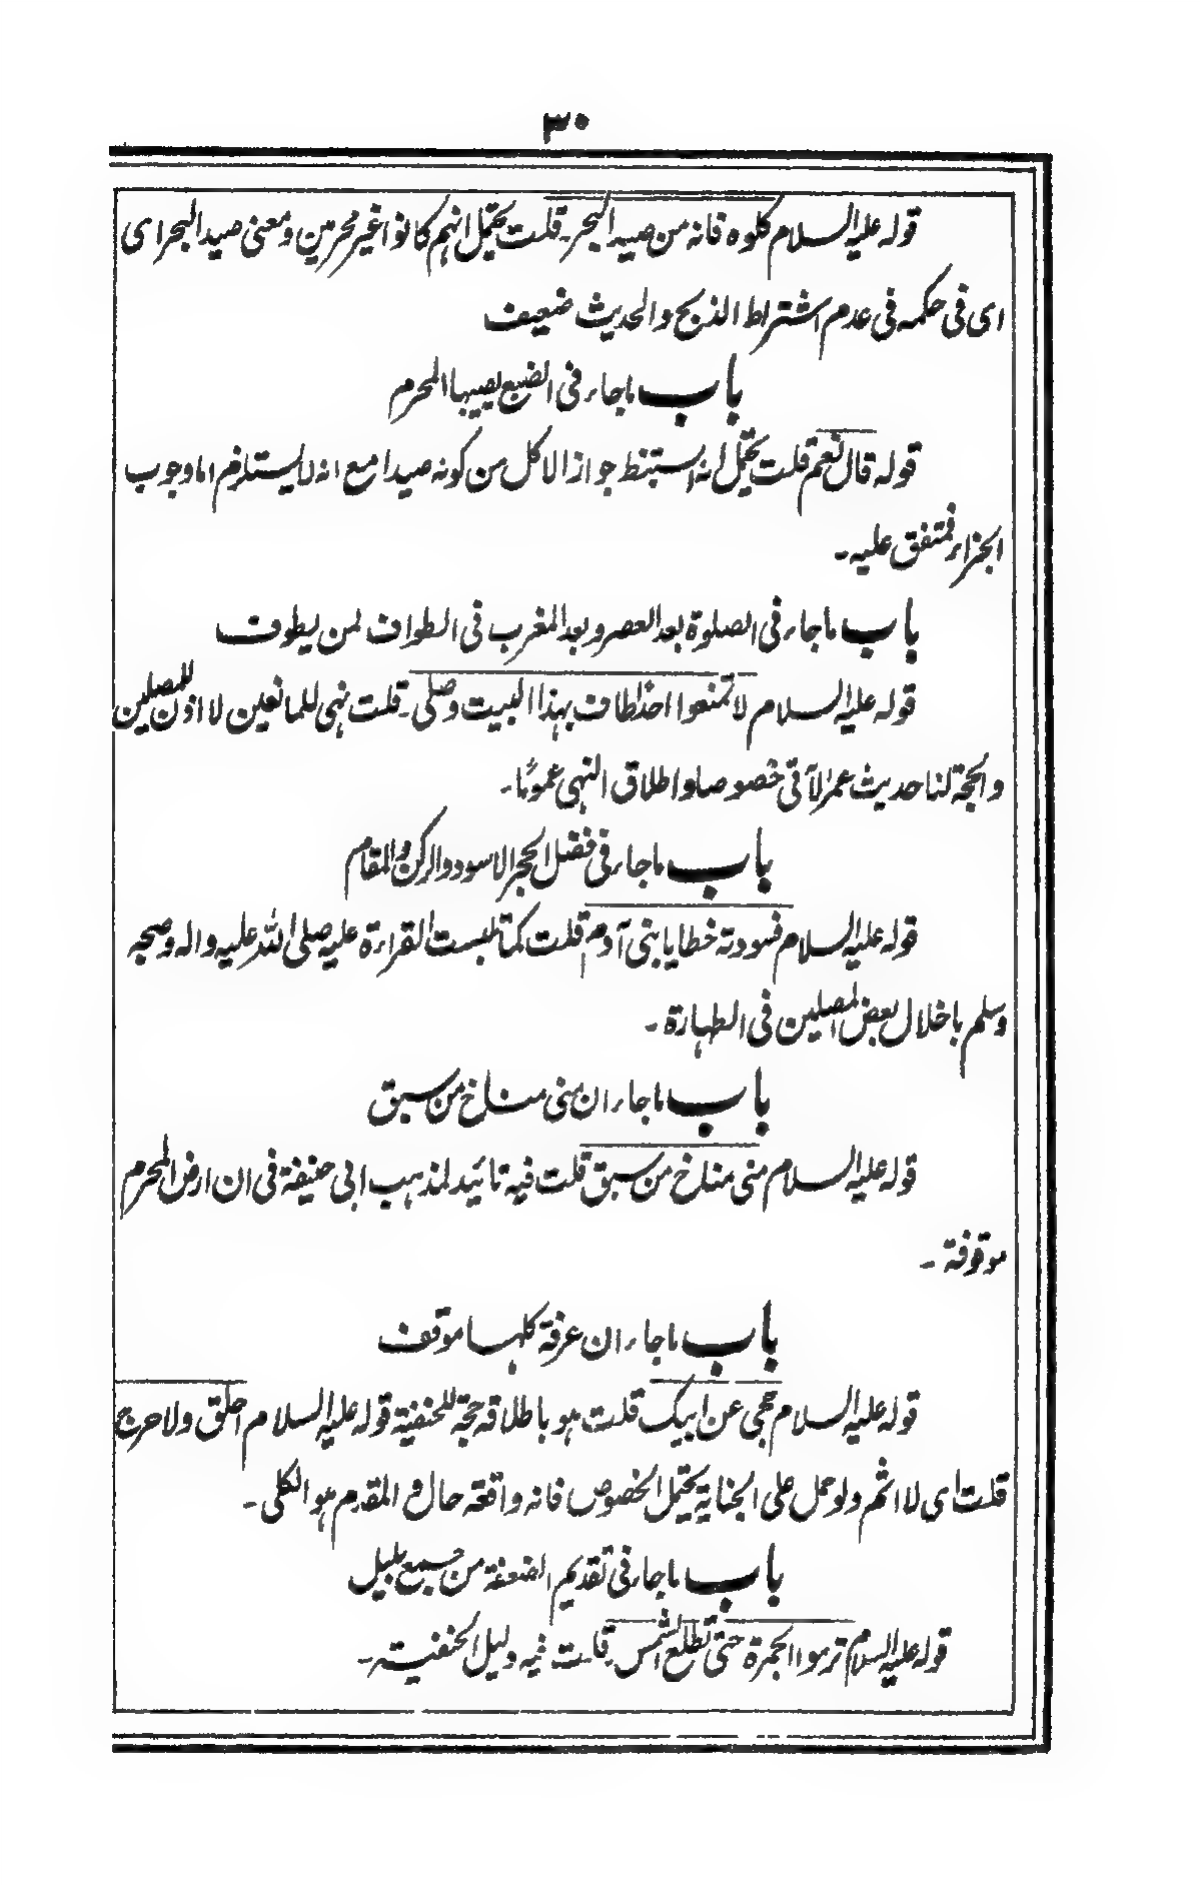 ٣٠
قوله عليه السلام كلوه فانه من صيد البحر۔ قلت يحتمل انهم كانوا غير محرمين ومعنى صيد البحر اى
اى فى حكمه فى عدم اشتراط الذبح والحديث ضعيف
باب ماجاء فى الضبع يصيبها المحرم
قوله قال نعم قلت يحتمل انه استنبط جواز الاكل من كونه صيدا مع انه لا يستلزم اما وجوب
الجزاء فمتفق عليه۔
باب ماجاء فى الصلوة بعد العصر وبعد المغرب فى الطواف لمن يطوف
قوله عليه السلام لا تمنعوا احدا طاف بهذا البيت وصلى۔ قلت نهى للمانعين لا اذن للمصلين
والحجة لنا حديث عمر الآتى خصوصا واطلاق النهى عموما۔
باب ماجاء فى فضل الحجر الاسود والركن والمقام
قوله عليه السلام فسودته خطايا بنى آدم قلت كما تلبست القراءة عليه صلى الله عليه واله وصحبه
وسلم باخلال بعض المصلين فى الطهارة۔
باب ماجاء ان منى مناخ من سبق
قوله عليه السلام منى مناخ من سبق قلت فيه تائيد لمذهب ابى حنيفة فى ان ارض المحرم
موقوفة۔
باب ماجاء ان عرفة كلها موقف
قوله عليه السلام حجى عن ابيك قلت هو باطلاقه حجة للحنفية قوله عليه السلام احلق ولا حرج
قلت اى لا اثم ولو حمل على الجناية يحتمل الخصوص فانه واقعة حال و المقدم هو الكلى۔
باب ماجاء فى تقديم الضعفة من جمع بليل
قوله عليه السلام ترموا الجمرة حتى تطلع الشمس۔ قلت فيه دليل الحنفية۔